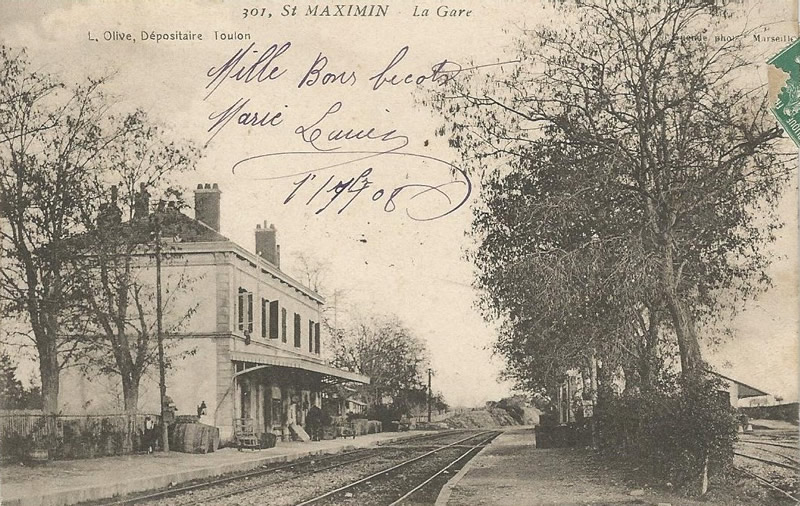 301, St MAXIMIN La Gare
L, Olive, Dépositaire Toulon
phot. Marseille
Mille Bons becots
Marie